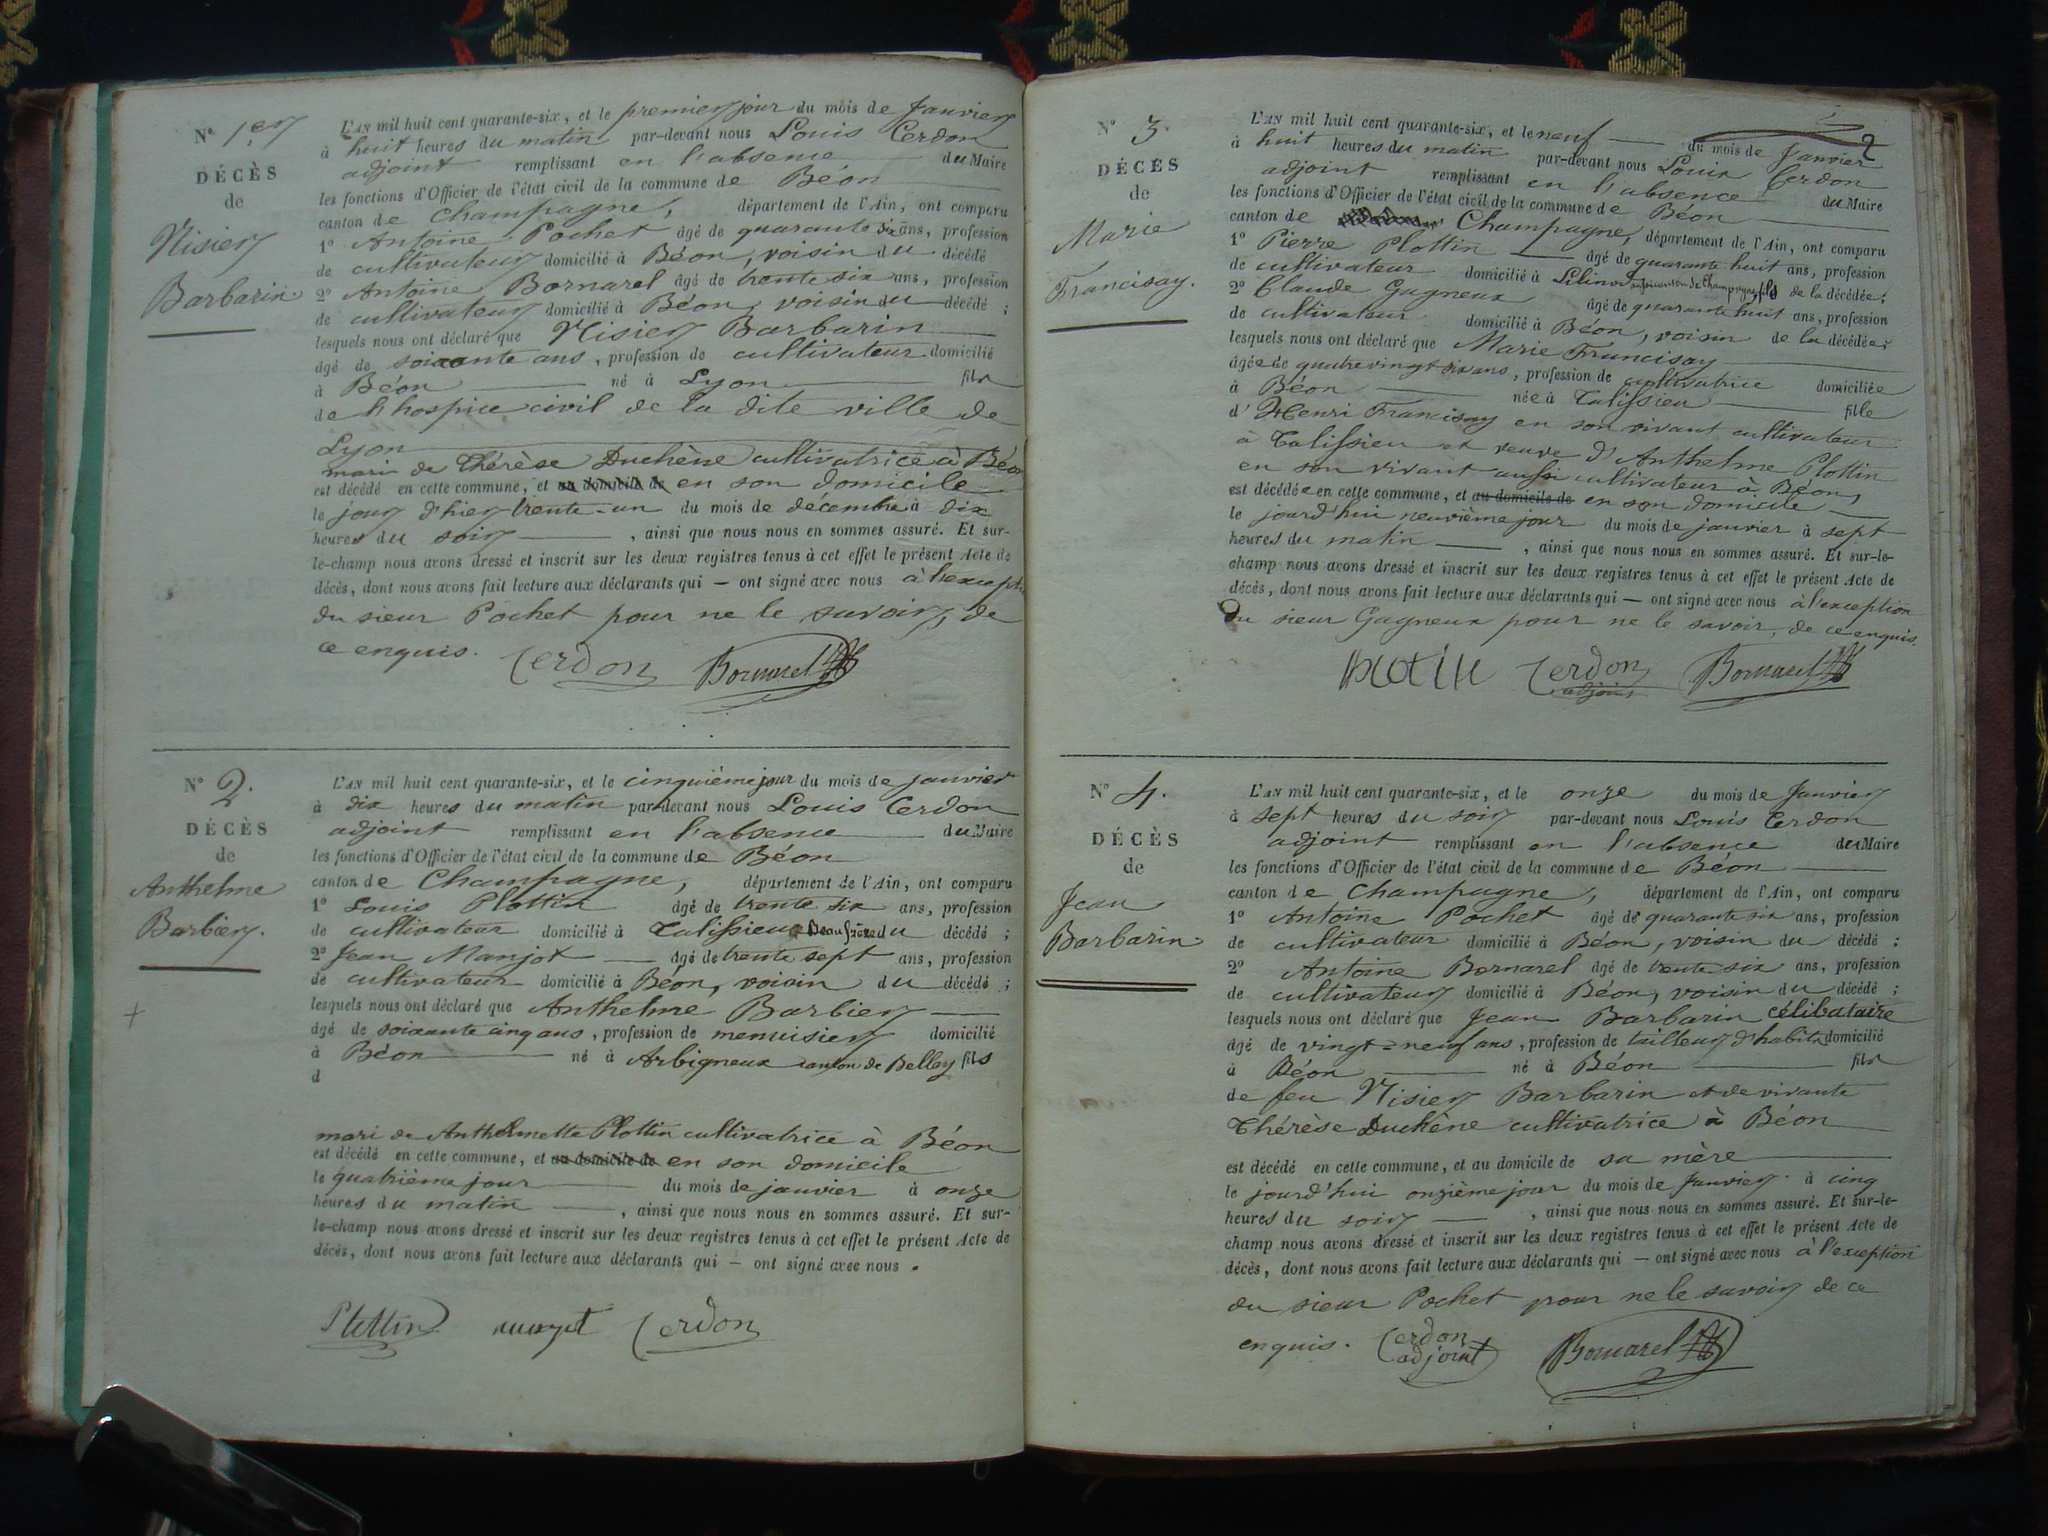 N° 1er
DÉCÈS
de
Nisier
Barbarin
L'AN mil huit cent quarante-six, et le premier jour du mois de Janvier
à huit heures du matin par-devant nous Louis Cerdon
adjoint remplissant en l'absence du Maire
les fonctions d'Officier de l'état civil de la commune de Béon
canton de Champagne, département de l'Ain, ont comparu
1° Antoine Pochet âgé de quarante six ans, profession
de cultivateur domicilié à Béon, voisin du décédé
2° Antoine Bornarel âgé de trente six ans, profession
de cultivateur domicilié à Béon, voisin du décédé ;
lesquels nous ont déclaré que Nisier Barbarin
âgé de soixante ans, profession de cultivateur domicilié
à Béon né à Lyon fils
de l'hospice civil de la dite ville de
Lyon
mari de Thérèse Duchêne cultivatrice à Béon
est décédé en cette commune, et au domicile de en son domicile
le jour d'hier trente-un du mois de décembre à dix
heures du soir, ainsi que nous nous en sommes assuré. Et sur-
le-champ nous avons dressé et inscrit sur les deux registres tenus à cet effet le présent Acte de
décès, dont nous avons fait lecture aux déclarants qui — ont signé avec nous à l'exception
du sieur Pochet pour ne le savoir, de
ce enquis. Cerdon Bornarel
N° 2.
DÉCÈS
de
Anthelme
Barbier.
L'AN mil huit cent quarante-six, et le cinquième jour du mois de janvier
à dix heures du matin par-devant nous Louis Cerdon
adjoint remplissant en l'absence du Maire
les fonctions d'Officier de l'état civil de la commune de Béon
canton de Champagne, département de l'Ain, ont comparu
1° Louis Plottin âgé de trente six ans, profession
de cultivateur domicilié à Talissieu Beaufrère du décédé ;
2° Jean Manjot âgé de trente sept ans, profession
de cultivateur domicilié à Béon, voisin du décédé ;
lesquels nous ont déclaré que Anthelme Barbier
âgé de soixante cinq ans, profession de menuisier domicilié
à Béon né à Arbigneux canton de Belley fils
d
mari de Anthelmette Plottin cultivatrice à Béon
est décédé en cette commune, et au domicile de en son domicile
le quatrième jour du mois de janvier à onze
heures du matin, ainsi que nous nous en sommes assuré. Et sur-
le-champ nous avons dressé et inscrit sur les deux registres tenus à cet effet le présent Acte de
décès, dont nous avons fait lecture aux déclarants qui — ont signé avec nous.
Plottin Cerdon
2
N° 3.
DÉCÈS
de
Marie
Francisay.
L'AN mil huit cent quarante-six, et le neuf du mois de Janvier
à huit heures du matin par-devant nous Louis Cerdon
adjoint remplissant en l'absence du Maire
les fonctions d'Officier de l'état civil de la commune de Béon
canton de Champagne, département de l'Ain, ont comparu
1° Pierre Plottin âgé de quarante huit ans, profession
de cultivateur domicilié à canton de Champagne fils de la décédée ;
2° Claude Gagneux âgé de quarante huit ans, profession
de cultivateur domicilié à Béon, voisin de la décédée ;
lesquels nous ont déclaré que Marie Francisay
âgée de quatre vingt six ans, profession de cultivatrice domiciliée
à Béon née à Talissieu fille
d'Henri Francisay en son vivant cultivateur
à Talissieu et veuve d'Anthelme Plottin
en son vivant aussi cultivateur à Béon,
est décédée en cette commune, et au domicile de en son domicile
le jourd'hui neuvième jour du mois de janvier à sept
heures du matin, ainsi que nous nous en sommes assuré. Et sur-le-
champ nous avons dressé et inscrit sur les deux registres tenus à cet effet le présent Acte de
décès, dont nous avons fait lecture aux déclarants qui — ont signé avec nous à l'exception
du sieur Gagneux pour ne le savoir, de ce enquis.
Cerdon Bornarel
adjoint
N° 4.
DÉCÈS
de
Jean
Barbarin
L'AN mil huit cent quarante-six, et le onze du mois de Janvier
à sept heures du soir par-devant nous Louis Cerdon
adjoint remplissant en l'absence du Maire
les fonctions d'Officier de l'état civil de la commune de Béon
canton de Champagne, département de l'Ain, ont comparu
1° Antoine Pochet âgé de quarante six ans, profession
de cultivateur domicilié à Béon, voisin du décédé ;
2° Antoine Bornarel âgé de trente six ans, profession
de cultivateur domicilié à Béon, voisin du décédé ;
lesquels nous ont déclaré que Jean Barbarin célibataire
âgé de vingt-neuf ans, profession de tailleur d'habits domicilié
à Béon né à Béon fils
de feu Nisier Barbarin et de vivante
Thérèse Duchêne cultivatrice à Béon
est décédé en cette commune, et au domicile de sa mère
le jourd'hui onzième jour du mois de Janvier à cinq
heures du soir, ainsi que nous nous en sommes assuré. Et sur-le-
champ nous avons dressé et inscrit sur les deux registres tenus à cet effet le présent Acte de
décès, dont nous avons fait lecture aux déclarants qui — ont signé avec nous à l'exception
du sieur Pochet pour ne le savoir de ce
enquis. Cerdon Bornarel
adjoint